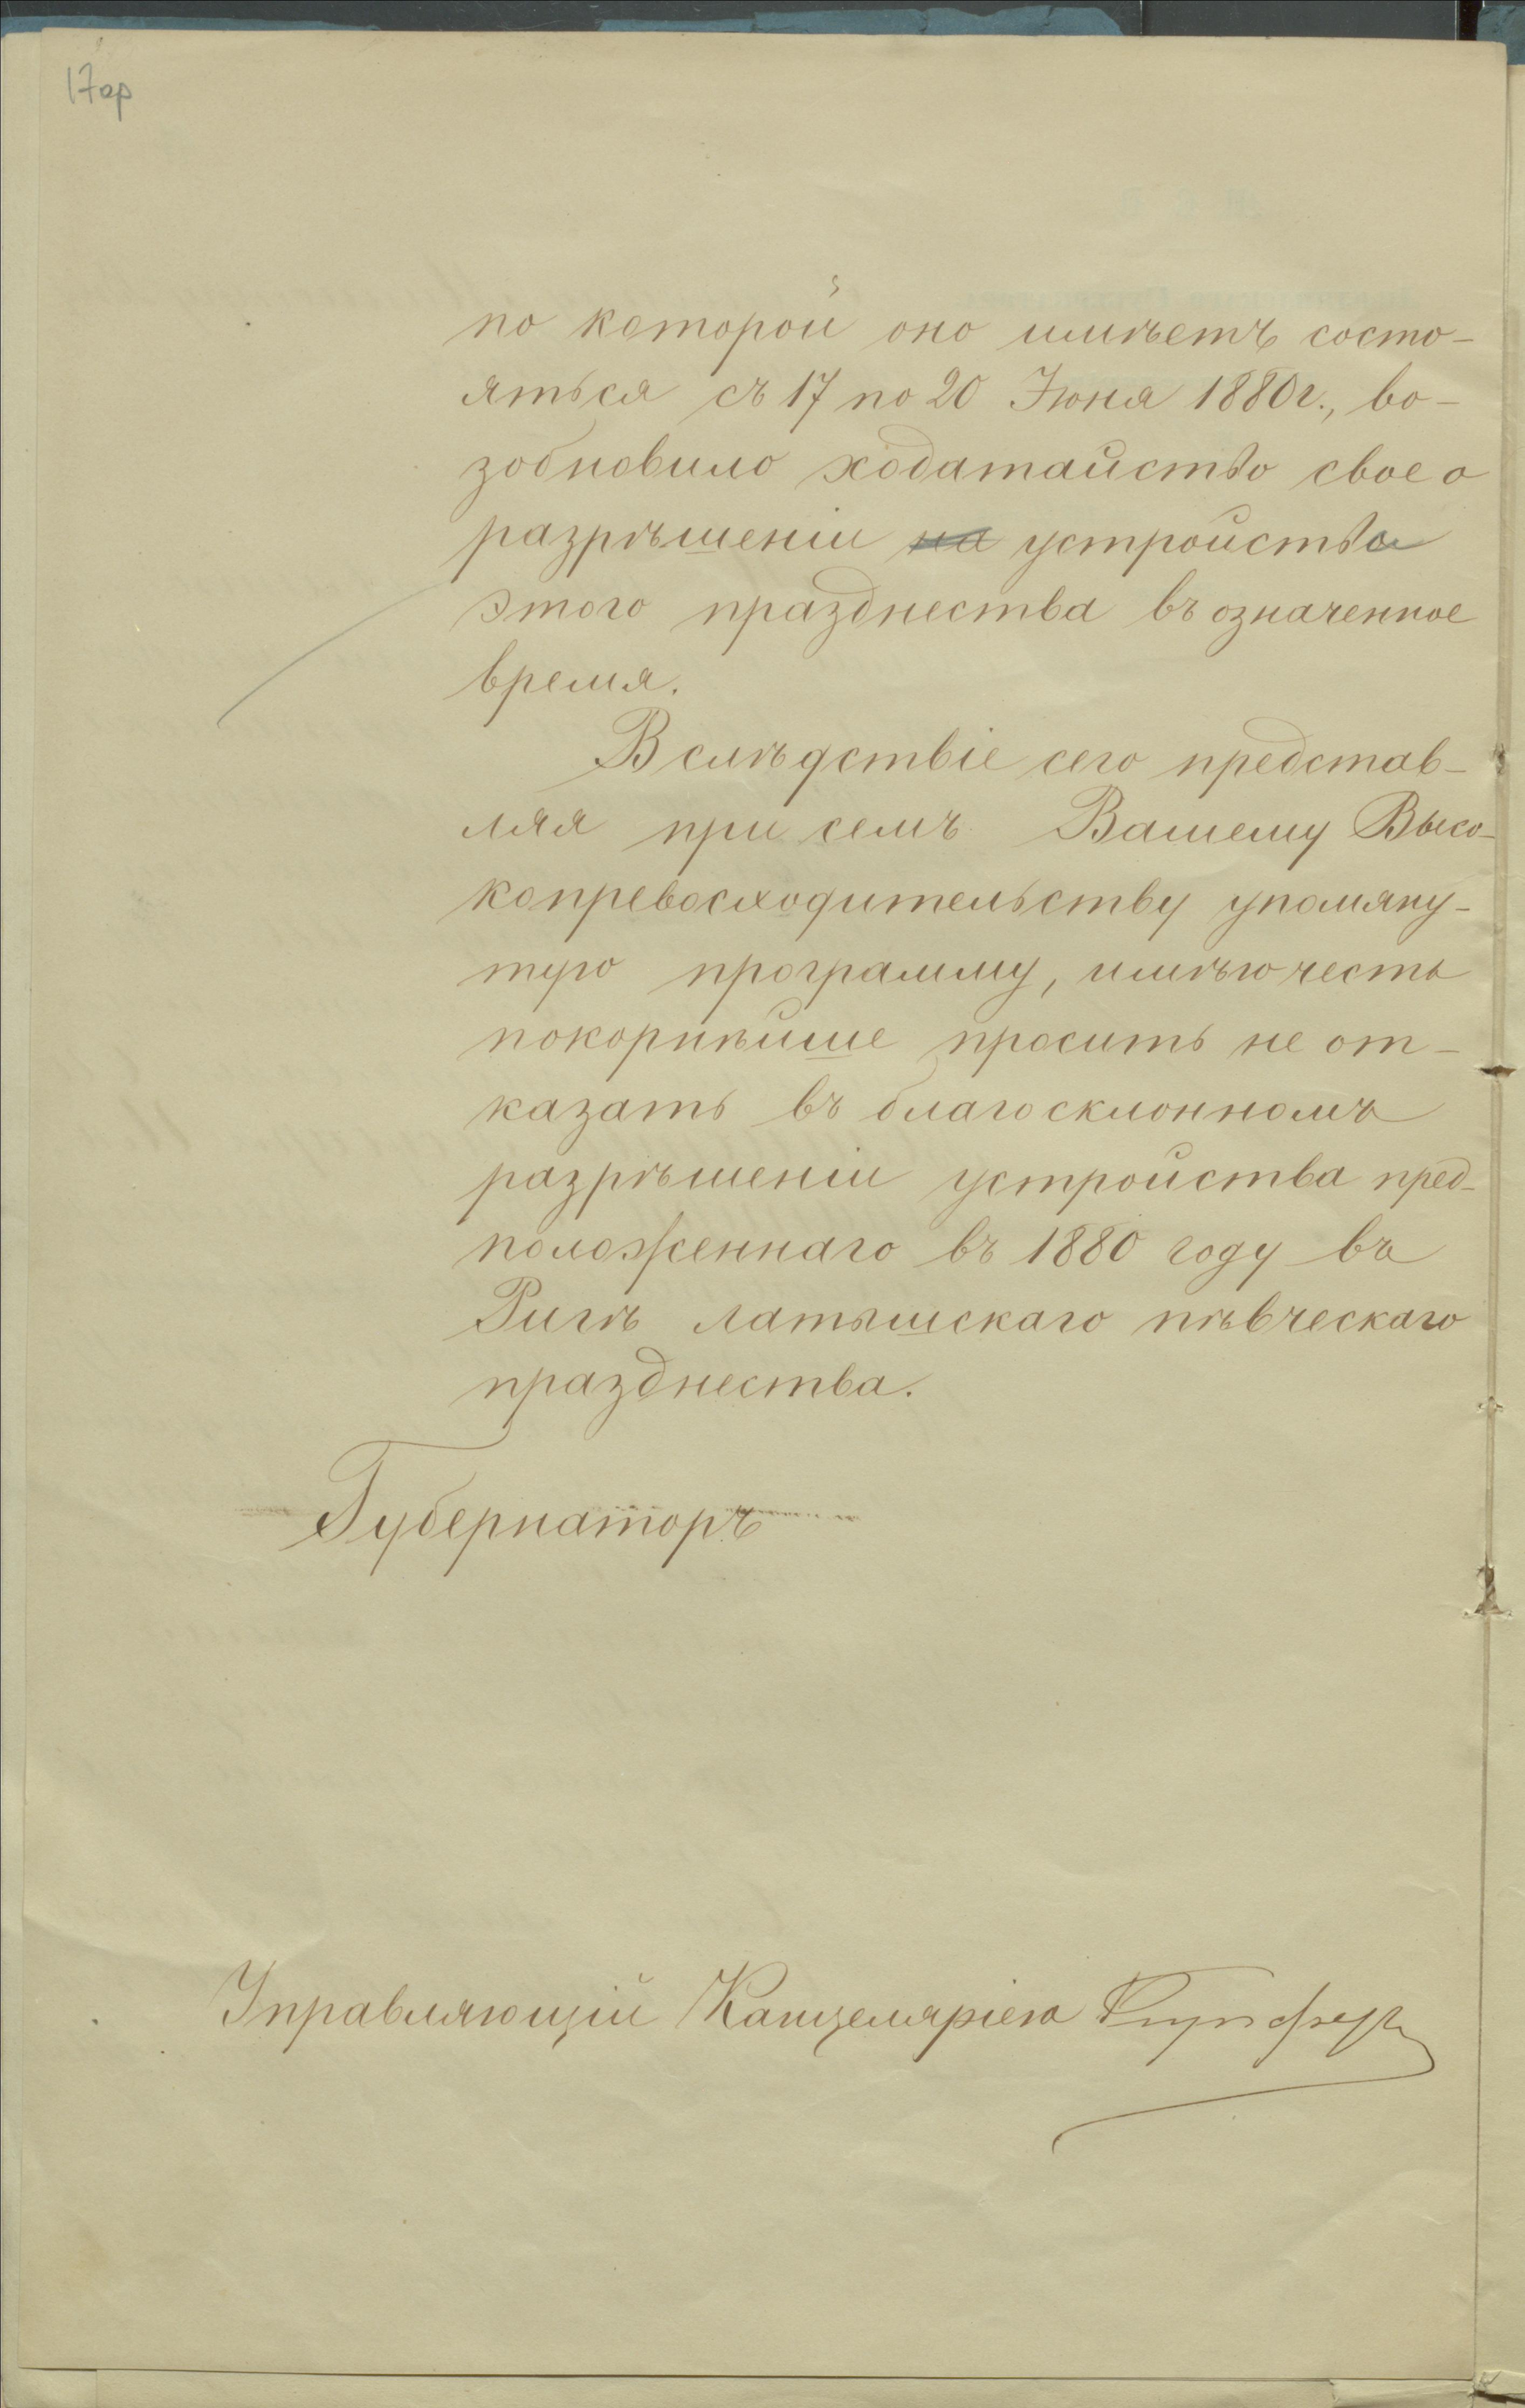 17ор
по которой оно имѣетъ состо-
яться съ 17 по 20 Іюня 1880 г., во-
зобновило ходатайство свое о
разрѣшеніи на устройства
этого празднества въ означенное
время.
Вслѣдствіе сего представ-
ляя при семъ Вашему Высо-
копревосходительству упомяну-
тую программу, имѣю честь
покорнѣйше просить не от-
казать въ благосклонномъ
разрѣшеніи устройства пред-
положеннаго въ 1880 году въ
Ригѣ латышскаго пѣвческаго
празднества.
Губернаторъ
Управляющій Канцеляріею